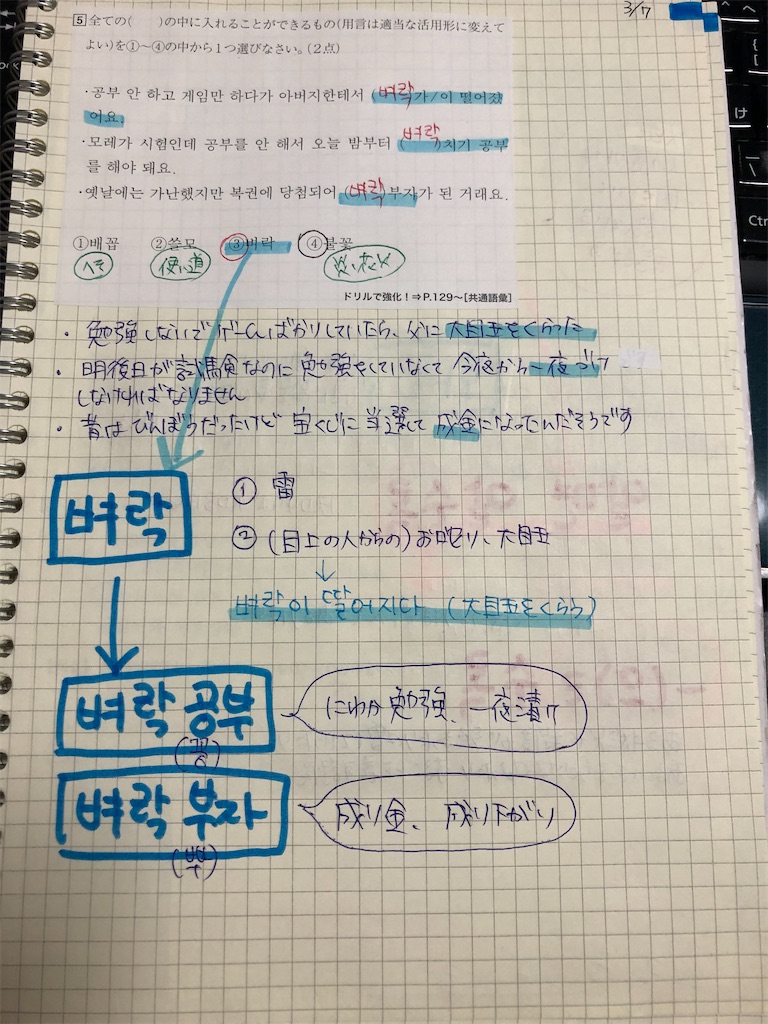 3/7
5 全ての(　　)の中に入れることができるもの(用言は適当な活用形に変えて
よい)を①～④の中から1つ選びなさい。(2点)
・공부 안 하고 게임만 하다가 아버지한테서 (벼락가/이 떨어졌
어요.
・모레가 시험인데 공부를 안 해서 오늘 밤부터 (벼락)치기 공부
를 해야 돼요.
・옛날에는 가난했지만 복권에 당첨되어 (벼락)부자가 된 거래요.
①배꼽 ②쓸모 ③벼락 ④불꽃
へそ 使い道 炎、花火
ドリルで強化!⇒P.129～[共通語彙]
・勉強しないでゲームばかりしていたら、父に大目玉をくらった
・明後日が試験なのに勉強をしていなくて今夜から一夜づけ
しなければなりません
・昔はびんぼうだったけど宝くじに当選して成金になったんだそうです
벼락
① 雷
② (目上の人からの)お叱り、大目玉
↓
벼락이 떨어지다 (大目玉をくらう)
벼락 공부
(꽁)
にわか勉強、一夜漬け
벼락 부자
(뿌)
成り金、成り下がり